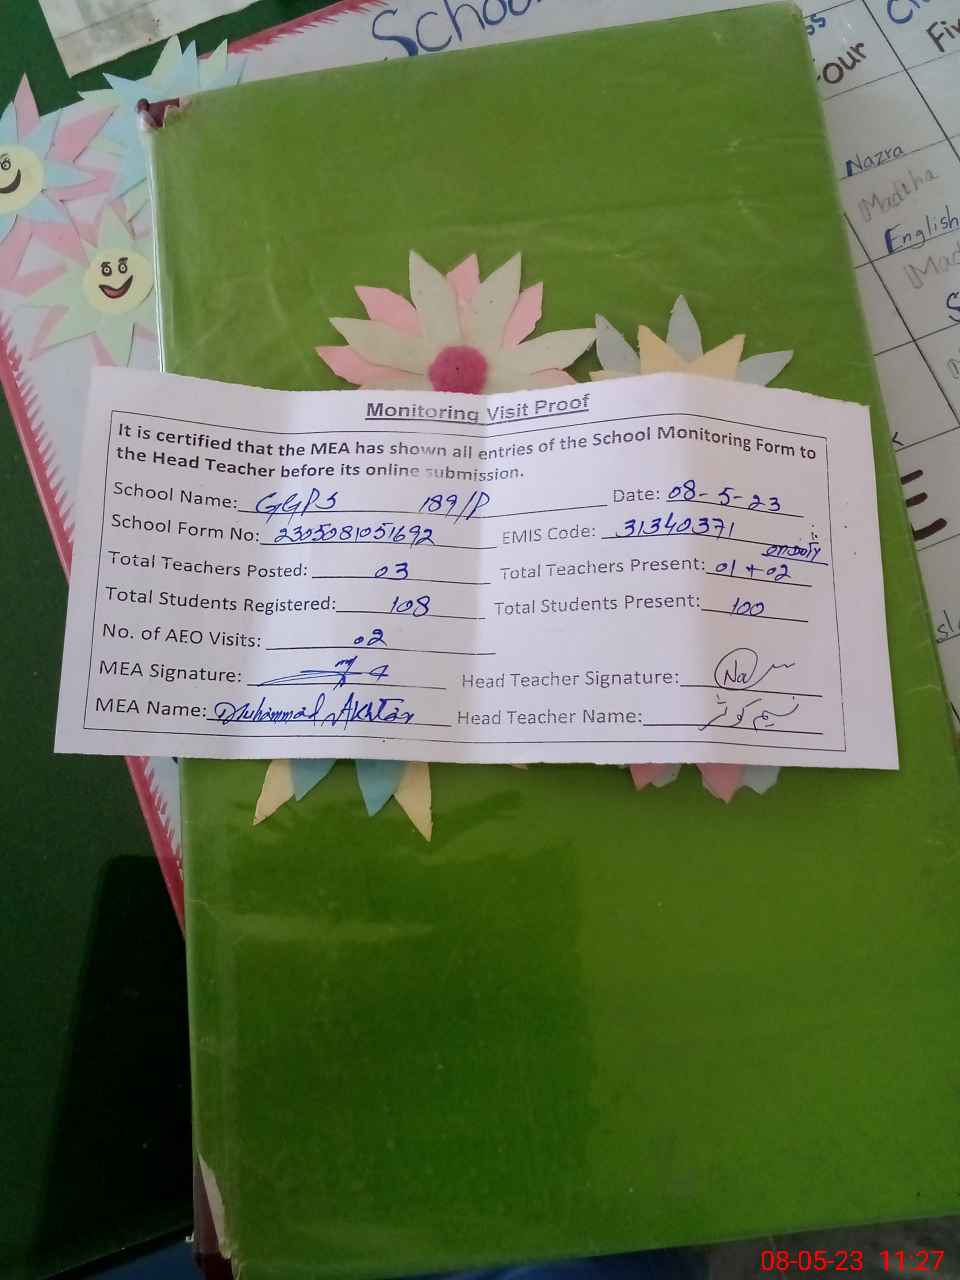 School
our
Fi
Nazra
Madiha
English
Monitoring Visit Proof
It is certified that the MEA has shown all entries of the School Monitoring Form to
the Head Teacher before its online submission.
School Name: GGPS 189/P Date: 08-5-23
School Form No: 2305081051692 EMIS Code: 31340371
Total Teachers Posted: 03 Total Teachers Present: 01 + 02
Total Students Registered: 108 Total Students Present: 100
No. of AEO Visits: 02
MEA Signature: Head Teacher Signature: Na
MEA Name: Muhammad Akhtar Head Teacher Name: نسیم کوثر
08-05-23 11:27